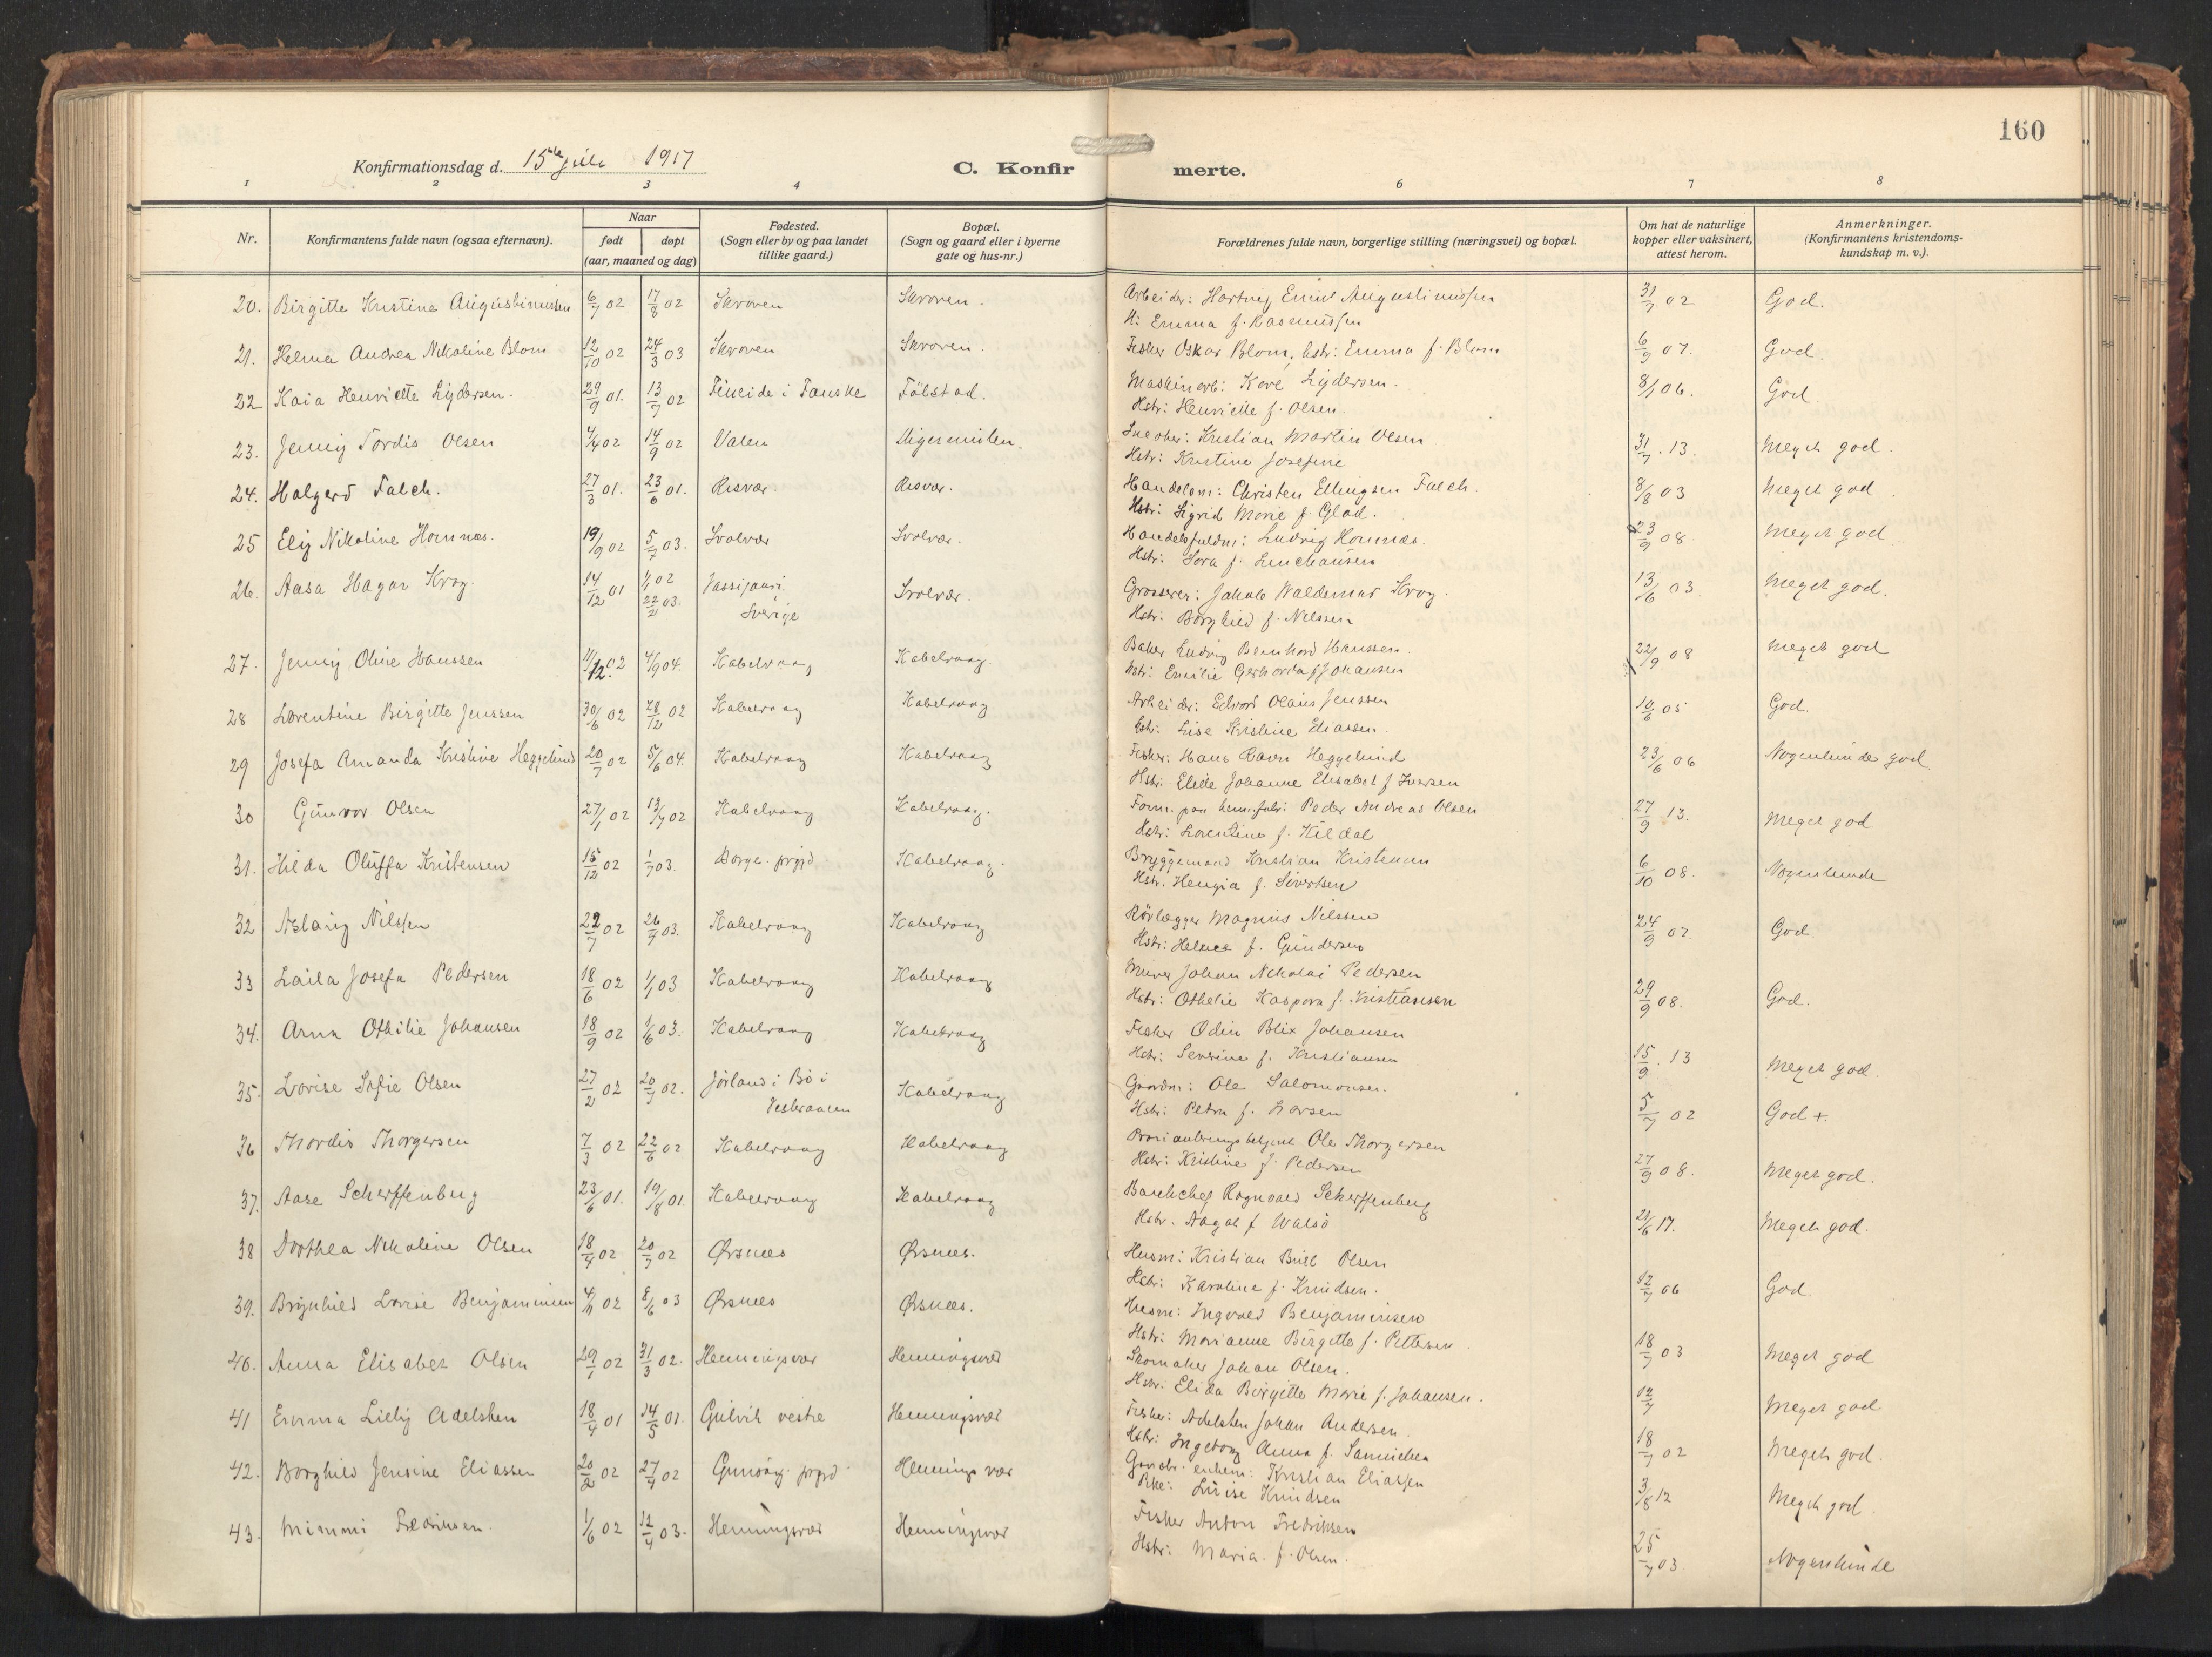 160
Konfirmationsdag d. 15de juli 1917
C. Konfirmerte.
1 2 3 4 6 7 8
Nr.
Konfirmantens fulde navn (ogsaa efternavn).
Naar
født døpt
(aar, maaned og dag)
Fødested.
(Sogn eller by og paa landet
tillike gaard.)
Bopæl.
(Sogn og gaard eller i byerne
gate og hus-nr.)
Forældrenes fulde navn, borgerlige stilling (næringsvei) og bopæl.
Om hat de naturlige
kopper eller vaksinert,
attest herom.
Anmerkninger.
(Konfirmantens kristendoms-
kundskap m. v.).
20. Birgitte Kristine Augustinussen 6/7 02 17/8 02 Skroven Skroven. Arbeider: Hartvig Emil Augustinussen 31/7 02 God.
H: Emma f. Rasmussen
21. Helma Andrea Nikoline Blom 12/10 02 24/3 03 Skroven Skroven. Fisker Oskar Blom, hstr: Emma f. Blom 6/9 07. God.
22 Kaia Henriette Lydersen. 29/9 01. 13/7 02 Fineide i Fauske Fölstad. Maskinarb: Kore Lydersen. 8/1 06. God
Hstr: Henriette f. Olsen.
23. Jenny Tordis Olsen 4/4 02 14/9 02 Valen Digermulen. Snedker: Kristian Martin Olsen 31/7. 13. Meget god.
Hstr: Kristine Josefine
24. Holgerd Falch. 27/3 01. 23/6 01. Risvær. Risvær. Handelsm: Christen Ellingsen Falch. 8/8 03 Meget god
Hstr: Sigrid Marie f. Glad.
25 Ely Nikoline Homnæs. 19/9 02 5/7 03. Svolvær Svolvær. Handelsfuldm: Ludvig Homnæs. 23/9 08. Meget god
Hstr: Sora f.
26. Aasa Hagar Krog. 14/12 01 1/1 02 22/2 03. Vassijauri. Svolvær. Grosserer: Jakob Waldemar Krog. 13/6 03. Meget god.
Sverige Hstr: Borghild f. Nilssen
27. Jenny Oline Hanssen 11/12 02 4/9 04. Kabelvaag Kabelvaag. Baker Ludvig Bernhard Hanssen. 22/9 08 Meget god
Hstr: Emilie Gerharda f Johansen
28 Lorentine Birgitte Jenssen 30/6 02 28/12 02 Kabelvaag Kabelvaag Arbeider: Edvard Olaus Jenssen 10/6 05 God.
Hstr: Lise Kristine Eliassen.
29 Josefa Amanda Kristine Heggelund 20/7 02 5/6 04. Kabelvaag Kabelvaag Fisker: Hans Ravn Heggelund 23/6 06 Nogenlunde god.
Hstr: Elede Johanne Elisabet f Iversen
30 Gunvor Olsen 27/1 02 13/7 02 Kabelvaag Kabelvaag. Form. paa herm.fabr: Peder Andreas Olsen 27/9 13. Meget god
Hstr: Lorentine f. Kildal
31. Hilda Oluffa Kristensen 15/12 02 1/7 03. Borge prgjd. Kabelvaag. Bryggemand Kristian Kristensen 6/10 08. Nogenlunde
Hstr. Hengia f. Sivertsen
32 Aslaug Nilssen 22/7 02 26/7 03. Kabelvaag Kabelvaag Rörlægger Magnus Nilssen 24/9 07. God.
Hstr: Helene f. Gundersen
33 Laila Josefa Pedersen 18/6 02 1/1 03 Kabelvaag Kabelvaag Murer Johan Nikolai Pedersen 29/9 08. God.
Hstr: Othelie Kaspara f. Kristiansen
34. Arna Othilie Johansen 18/9 02 1/6 03. Kabelvaag Kabelvaag Fisker Odin Blix Johansen 15/9. 13 Meget god.
Hstr: Severine f. Kristiansen
35. Lovise Sofie Olsen 27/2 02 20/7 02. Jörland i Bö i Kabelvaag Gaardm: Ole Salomonsen. 5/7 02 God +.
Vesteraalen Hstr: Petra f. Larsen
36 Thordis Thorgersen 7/3 02 22/6 02 Kabelvaag Kabelvaag Ole Thorgersen 27/9 08. Meget god.
Hstr: Kristine f. Pedersen
37. Aase Scherffenberg 23/6 01. 19/8 01. Kabelvaag Kabelvaag Bankchef Ragnvald Scherffenberg 21/6 17. Meget god.
Hstr. Aagot f Walsö
38 Dorthea Nikoline Olsen 18/4 02 20/7 02 Ørsnes Ørsnes. Husm: Kristian Bull Olsen 12/7 06 God.
Hstr: Karoline f. Knudsen.
39. Brynhild Lovise Benjaminsen 4/11 02 8/6 03 Ørsnes Ørsnes. Husm: Ingvald Benjaminsen 18/7 03 Meget god
Hstr: Marianne Birgitte f. Pettersen
40. Anna Elisabet Olsen 29/1 02 31/3 02. Henningsvær Henningsvær Skomaker Johan Olsen. 12/7 Meget god
Hstr. Elida Birgitte Marie f. Johansen.
41 Emma Lielly Adelsten 18/4 01 14/5 01. Gulvik vestre Henningsvær Fisker: Adelsten Johan Andersen. 18/7 02 Meget god.
Hstr: Ingeborg Anna f.
42. Borghild Jensine Eliassen 20/2 02 27/4 02 prgjd. Henningsvær Gaardbr. enkem: Kristian Eliassen 3/8 12 Meget god.
Pike: Luise Knudsen
43. Mimmi Fredriksen. 1/6 02 12/4 03. Henningsvær Henningsvær Fisker Anton Fredriksen 25/7 03 Nogenlunde
Hstr: Maria f. Olsen.